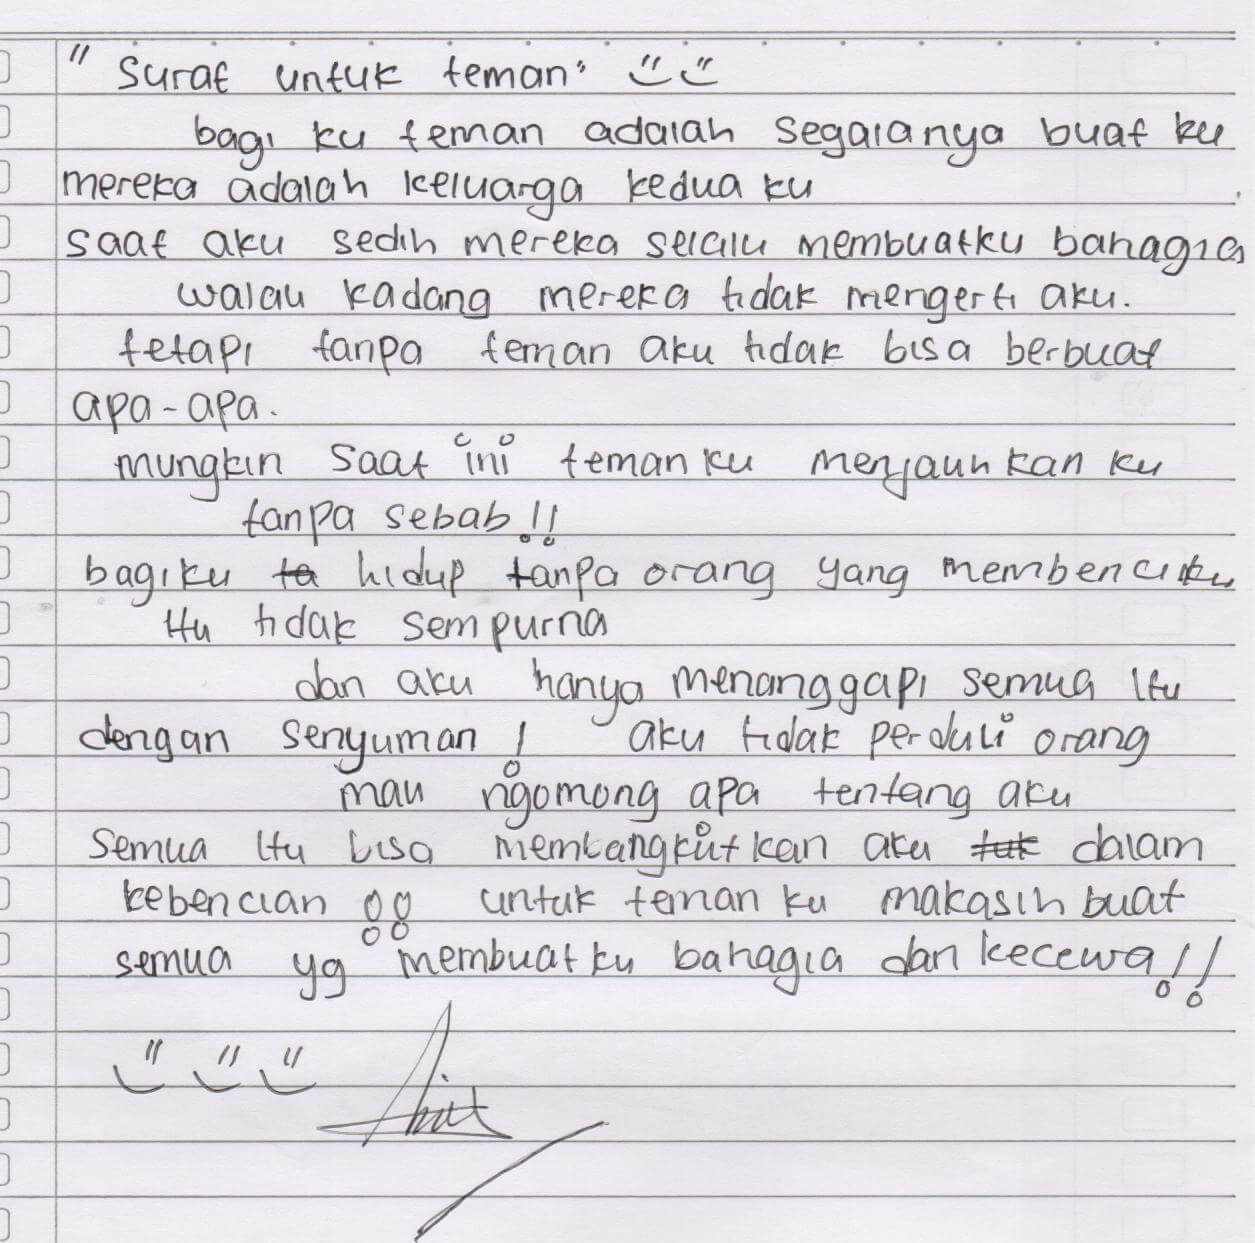 "Surat untuk teman"
bagi ku teman adalah segalanya buat ku
mereka adalah keluarga kedua ku
saat aku sedih mereka selalu membuatku bahagia
walau kadang mereka tidak mengerti aku.
tetapi tanpa teman aku tidak bisa berbuat
apa-apa.
mungkin saat ini teman ku menjauhkan ku
tanpa sebab!!
bagiku ta hidup tanpa orang yang membenciku
itu tidak sempurna
dan aku hanya menanggapi semua itu
dengan senyuman! aku tidak perduli orang
mau ngomong apa tentang aku
semua itu bisa membangkitkan aku tuk dalam
kebencian!! untuk teman ku makasih buat
semua yg membuatku bahagia dan kecewa!!